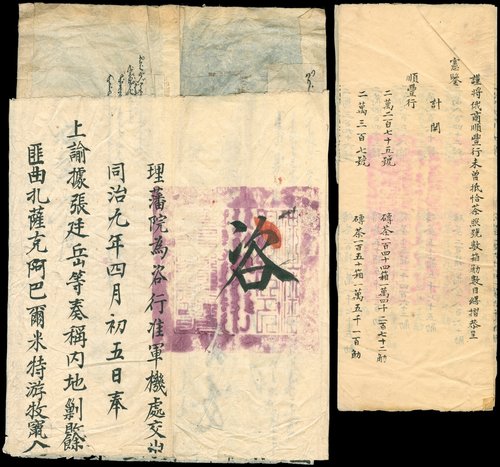 咨
理藩院為咨行准軍機處交出
同治九年四月初五日奉
上諭據張廷岳等奏稱內地剿餘
匪曲扎薩克阿巴爾米特游牧竄入
謹將俄商順豐行未曾抵恰茶照號數箱觔數目繕摺恭呈
憲鑒
計開
順豐行
二萬二百七十五號 磚茶一百四十四箱一萬四千二百七十二觔
二萬三百七號 磚茶一百五十箱一萬五千一百觔